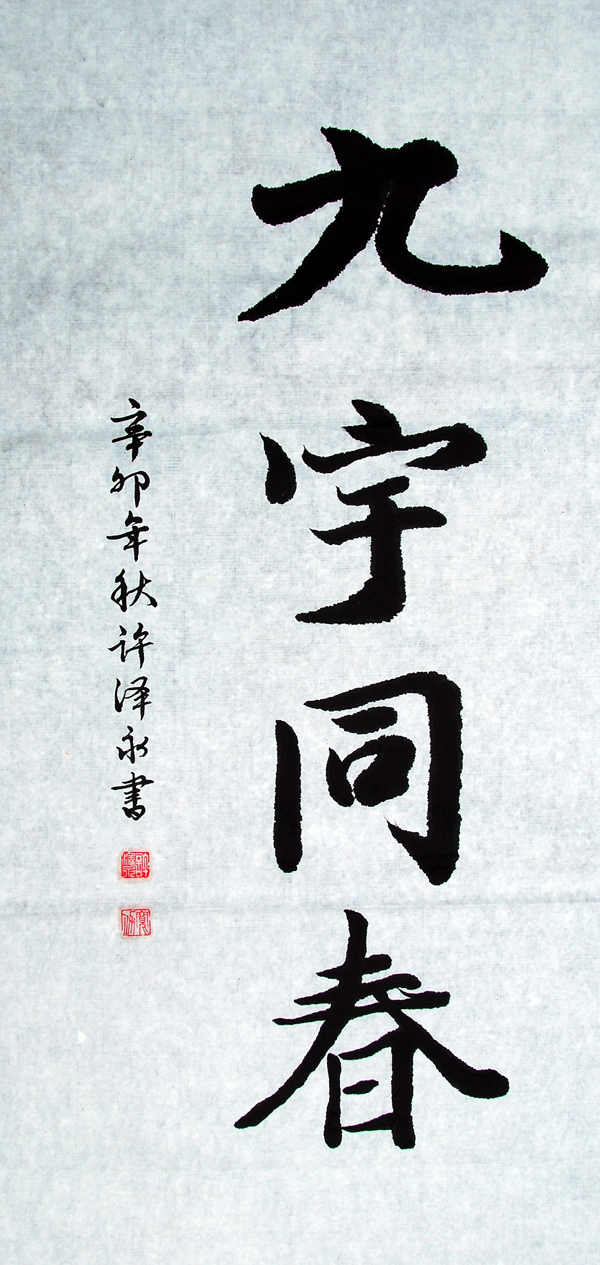 九宇同春
辛卯年秋许泽永書